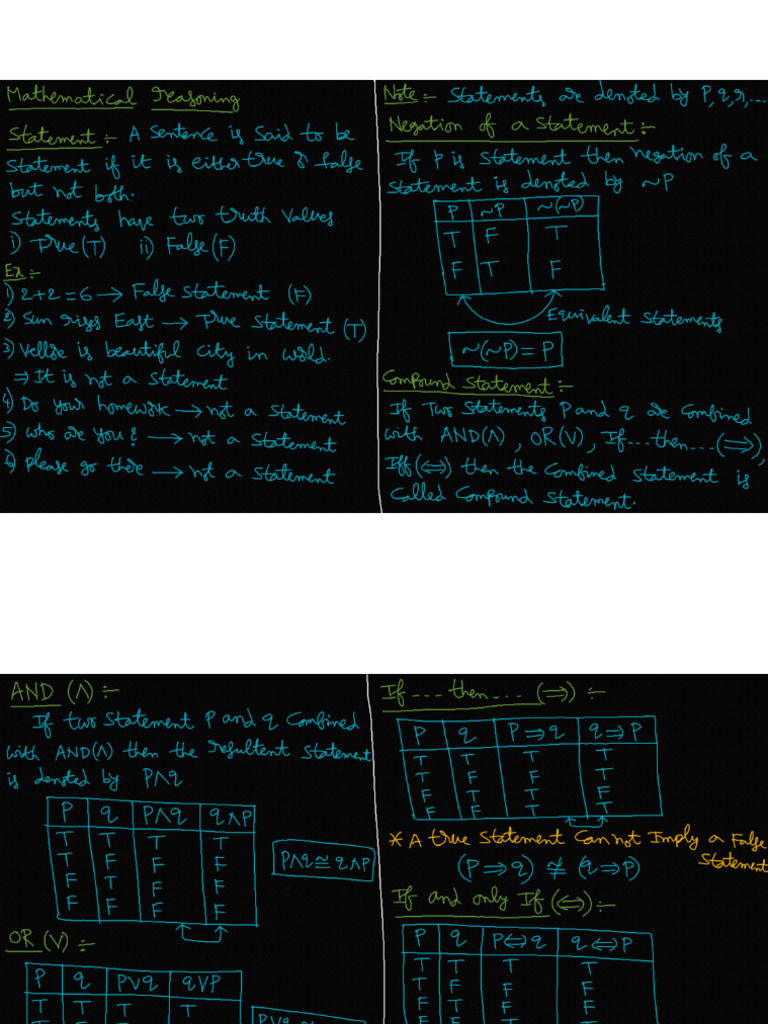 Mathematical reasoning
Statement :- A sentence is said to be
statement if it is either true or false
but not both.
Statements have two truth values.
i) True (T) ii) False (F)
Ex :-
1) 2+2=6 → False statement (F)
2) Sun rises East → True statement (T)
3) Vellore is beautiful city in world.
⇒ It is not a statement
4) Do your homework → not a statement
5) who are you? → not a statement
6) please go there → not a statement
Note :- Statements are denoted by P, q, r, ...
Negation of a statement :-
If P is statement then negation of a
statement is denoted by ~P
P ~P ~(~P)
T F T
F T F
Equivalent statements
~(~P) = P
Compound statement :-
If Two statements P and q are combined
with AND(∧), OR(∨), If...then...(⇒),
Iff(⇔) then the combined statement is
called compound statement.
AND (∧) :-
If two statement P and q combined
with AND(∧) then the resultent statement
is denoted by P∧q
P q P∧q q∧P
T T T T
T F F F
F T F F
F F F F
P∧q ≅ q∧P
OR (∨) :-
P q P∨q q∨P
T T T T
P∨q
If ---- then ---- (⇒) :-
P q P⇒q q⇒P
T T T T
T F F T
F T T F
F F T T
* A true statement can not Imply a False
statement
(P⇒q) ≇ (q⇒P)
If and only If (⇔) :-
P q P⇔q q⇔P
T T T T
T F F F
F T F F
F F